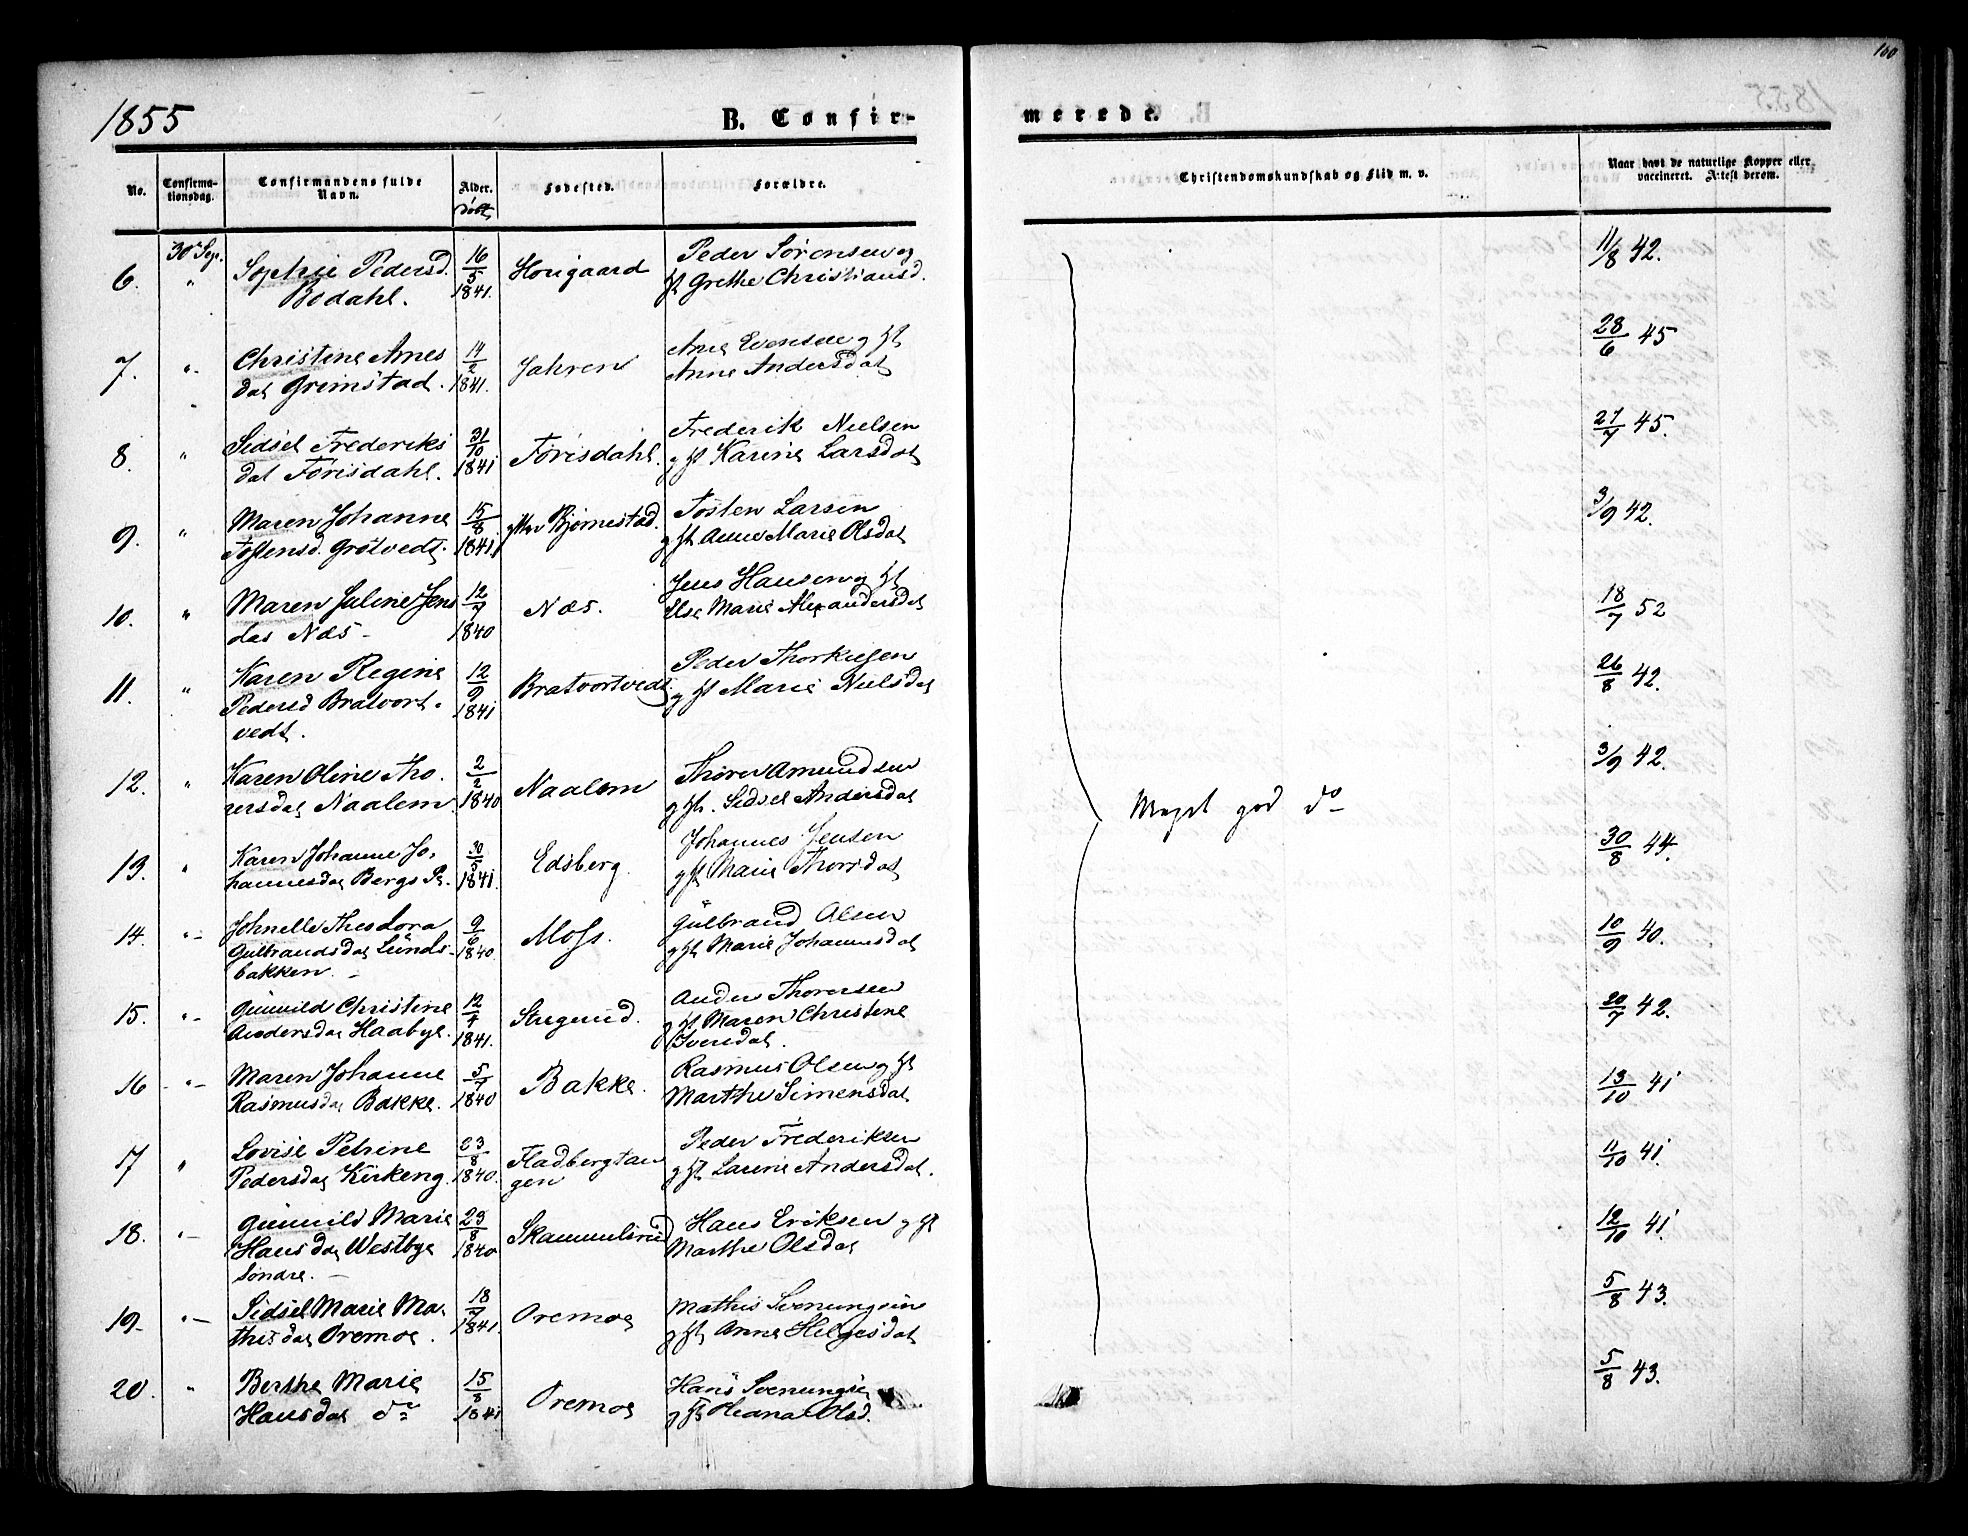 100
1855
B. Confir-
merede.
No.
Confirma-
tionsdag.
Confirmandens fulde
Navn.
Alder.
født
Fødested.
Forældre.
Christendomskundskab og Flid m. v.
Naar havt de naturlige Kopper eller
vaccineret. Attest derom.
6. 30 Sep. " Sophie Pedersd. Bodahl. 16/5 1841. Horigaard Peder Sørensen og
Grethe Christiansd. 11/8 42.
7. " Christine Arnes
dat Grimstad. 14/2 1841. Jahren Arne Evensen g Hst
Anne Andersdat 28/6 45
8. " Sidsel Frederiks
dat Førisdahl. 31/10 1841 Førisdahl. Frederik Nielsen
g Hst Karine Larsdat 27/7 45.
9. " Maren Johanne
Tostensd. Grøtvedt. 15/8 1841 Bjørnestad. Tosten Larsen
g Hst Anne Marie Olsdat 3/9 42.
10. " Maren Juline Jens
dat Næs 12/7 1840 Næs. Jens Hansen g Hst
Else Marie Alexandersdat 18/7 52
11. " Karen Regine
Pedersd Bratvort-
vedt. 12/9 1841 Bratvortvedt. Peder Thorkilsen
g Hst Marie Nielsdat 26/8 42.
12. " Karen Oline Tho-
rersdat Naalem. 2/2 1840 Naalem Thorer Amundsen
g Hst. Sidsel Andersdat 3/9 42.
Meget god do
13. " Karen Johanne Jo-
hannesdat Bergs 30/5 1841. Edsberg. Johannes Jensen
g Hst Marie Thorsdat 30/8 44.
14. " Johnelle Theodora
Gulbrandsdat Lunds-
bakken. 9/6 1840. Moss. Gulbrand Olsen
g Hst Marie Johannesdat 10/9 40.
15. " Gunnild Christine
Andersdat Haabye. 12/4 1841. Stregund. Anders Thoresen
g Hst Maren Christine
Iversdat. 20/7 42.
16 " Maren Johanne
Rasmusdat Bakke. 5/7 1840 Bakke. Rasmus Olsen g Hst
Marthe Simensdat 13/10 41
17 " Lovise Petrine
Pedersdat Kirkeng. 23/8 1840. Fladbergtan
gen Peder Frederiksen
g Hst Larine Andersdat. 11/10 41.
18. " Gunnild Marie
Hansdat Westbye
Søndre. 23/8 1840 Skammelsrud Hans Eriksen g Hst
Marthe Olsdat 12/10 41.
19. " Sidsel Marie Ma-
thisdat Oremoe. 18/7 1841. Oremoe Mathis Svenungsen
g Hst Anne Helgesdat 5/8 43.
20. " Berthe Marie
Hansdat do 15/8 1841 Oremoe Hans Svenungsen
g Hst Oleana Olsd. 5/8 43.